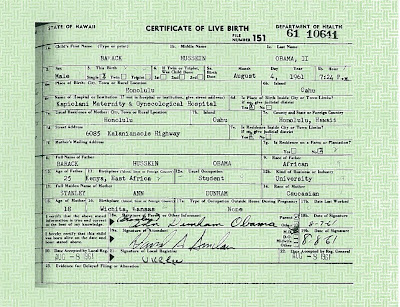 STATE OF HAWAII CERTIFICATE OF LIVE BIRTH DEPARTMENT OF HEALTH
FILE NUMBER 151 61 10641
1a. Child's First Name (Type or print) 1b. Middle Name 1c. Last Name
BARACK HUSSEIN OBAMA, II
2. Sex 3. This Birth 4. If Twin or Triplet, Was Child Born 5a. Birth Date Month Day Year 5b. Hour
Male Single Twin Triplet 1st 2nd 3rd August 4, 1961 7:24 P.M.
6a. Place of Birth: City, Town or Rural Location 6b. Island
Honolulu Oahu
6c. Name of Hospital or Institution (If not in hospital or institution, give street address) 6d. Is Place of Birth Inside City or Town Limits? If no, give judicial district
Kapiolani Maternity & Gynecological Hospital Yes No
7b. Island 7c. County and State or Foreign Country
Honolulu Oahu Honolulu, Hawaii
7d. Street Address 7e. Is Residence Inside City or Town Limits? If no, give judicial district
6085 Kalanianaole Highway Yes No
7f. Mother's Mailing Address 7g. Is Residence on a Farm or Plantation?
Yes No
8. Full Name of Father 9. Race of Father
BARACK HUSSEIN OBAMA African
10. Age of Father 11. Birthplace 12a. Usual Occupation 12b. Kind of Business or Industry
25 Kenya, East Africa Student University
13. Full Maiden Name of Mother 14. Race of Mother
STANLEY ANN DUNHAM Caucasian
15. Age of Mother 16. Birthplace 17a. 17b. Date Last Worked
18 Wichita, Kansas None
I certify that the above stated information is true and correct to the best of my knowledge. 18a. Signature of Parent or Other Informant Parent Other 18b. Date of Signature
Ann Dunham Obama 8-7-61
I hereby certify that this child was born alive on the date and hour stated above. 19a. Signature of Attendant M.D. D.O. Midwife Other 19b. Date of Signature
8-8-61
20. Date Accepted by Local Reg. 21. Signature of Local Registrar 22. Date Accepted by Reg. General
AUG -8 1961 AUG -8 1961
23. Evidence for Delayed Filing or Alteration